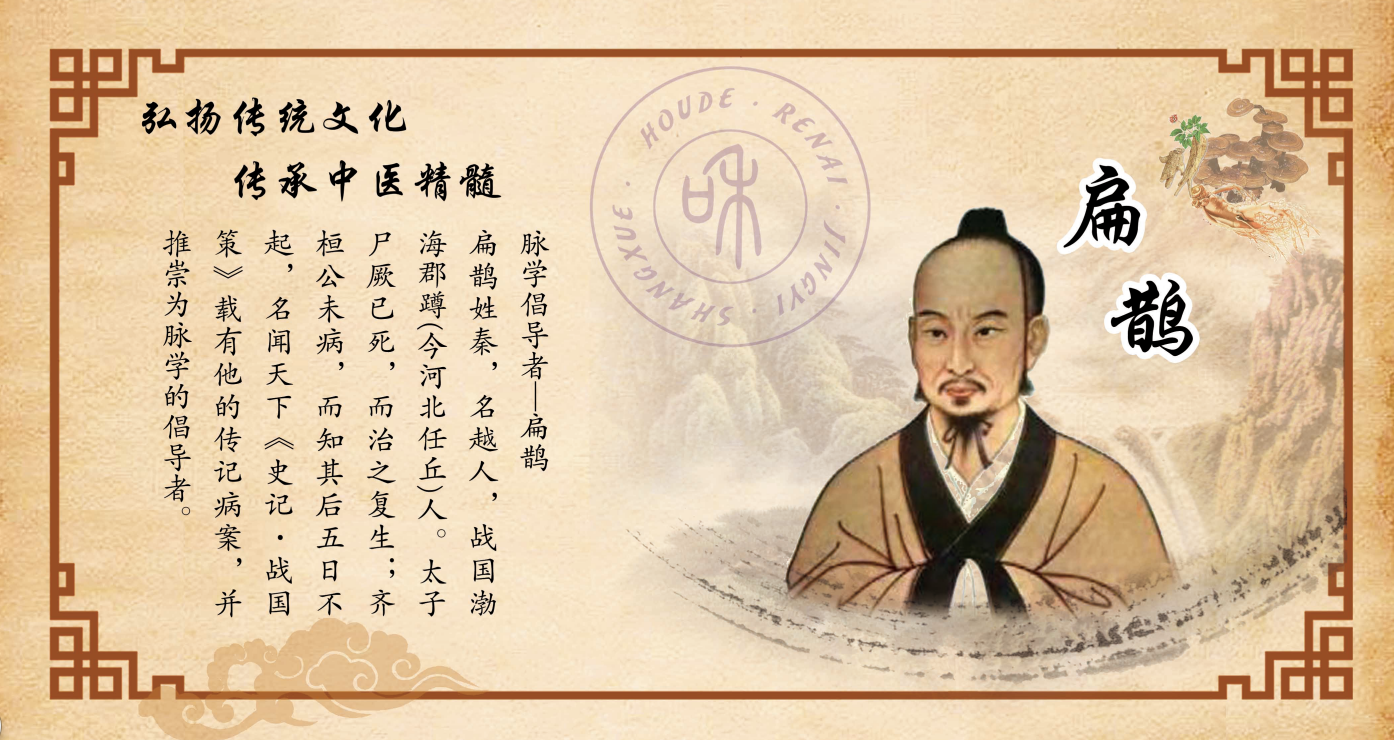 弘扬传统文化
传承中医精髓
脉学倡导者—扁鹊
扁鹊姓秦，名越人，战国渤
海郡蹲(今河北任丘)人。太子
尸厥已死，而治之复生；齐
桓公未病，而知其后五日不
起，名闻天下《史记·战国
策》载有他的传记病案，并
推崇为脉学的倡导者。
HOUDE · RENAI · JINGYI · SHANGXUE ·
和
扁
鹊